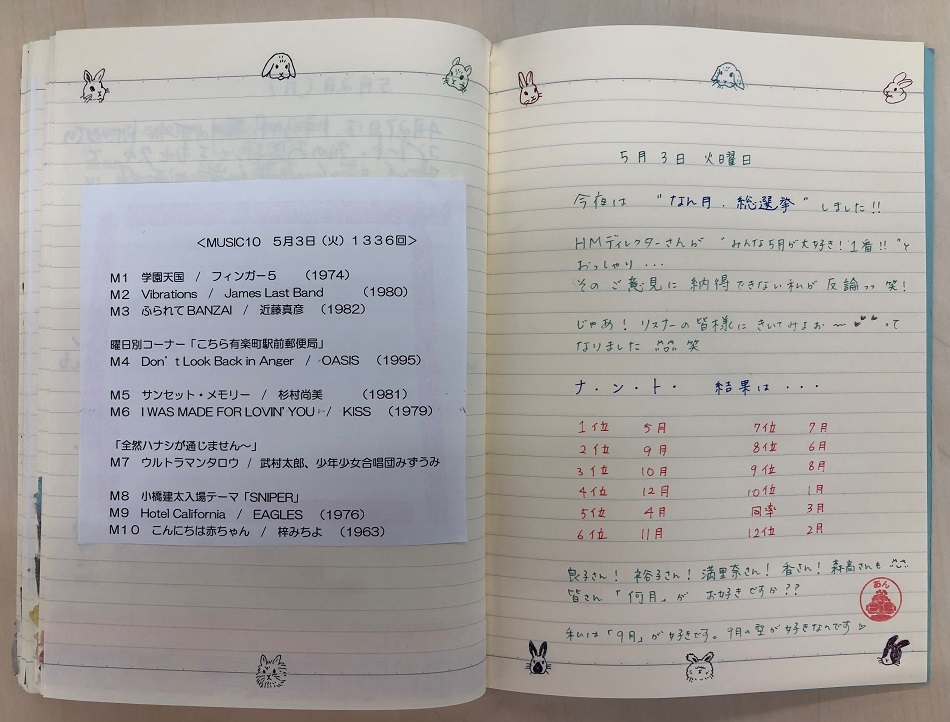 <MUSIC10 5月3日（火）1336回>
M1 学園天国 / フィンガー5 （1974）
M2 Vibrations / James Last Band （1980）
M3 ふられてBANZAI / 近藤真彦 （1982）
曜日別コーナー「こちら有楽町駅前郵便局」
M4 Don't Look Back in Anger / OASIS （1995）
M5 サンセット・メモリー / 杉村尚美 （1981）
M6 I WAS MADE FOR LOVIN' YOU / KISS （1979）
「全然ハナシが通じません〜」
M7 ウルトラマンタロウ / 武村太郎、少年少女合唱団みずうみ
M8 小橋建太入場テーマ「SNIPER」
M9 Hotel California / EAGLES （1976）
M10 こんにちは赤ちゃん / 梓みちよ （1963）
5月3日 火曜日
今夜は "なん月.総選挙" しました!!
HMディレクターさんが "みんな5月が大好き!1番!!"と
おっしゃり...
そのご意見に納得できない私が反論っっ笑!
じゃあ!リスナーの皆様にきいてみよぉ〜って
なりました 笑
ナ・ン・ト・ 結果は・・・
1位 5月 7位 7月
2位 9月 8位 6月
3位 10月 9位 8月
4位 12月 10位 1月
5位 4月 同率 3月
6位 11月 12位 2月
良子さん!裕子さん!満里奈さん!香さん!森高さんも
皆さん「何月」が お好きですか??
あん
私は「9月」が好きです。9月の空が好きなんです